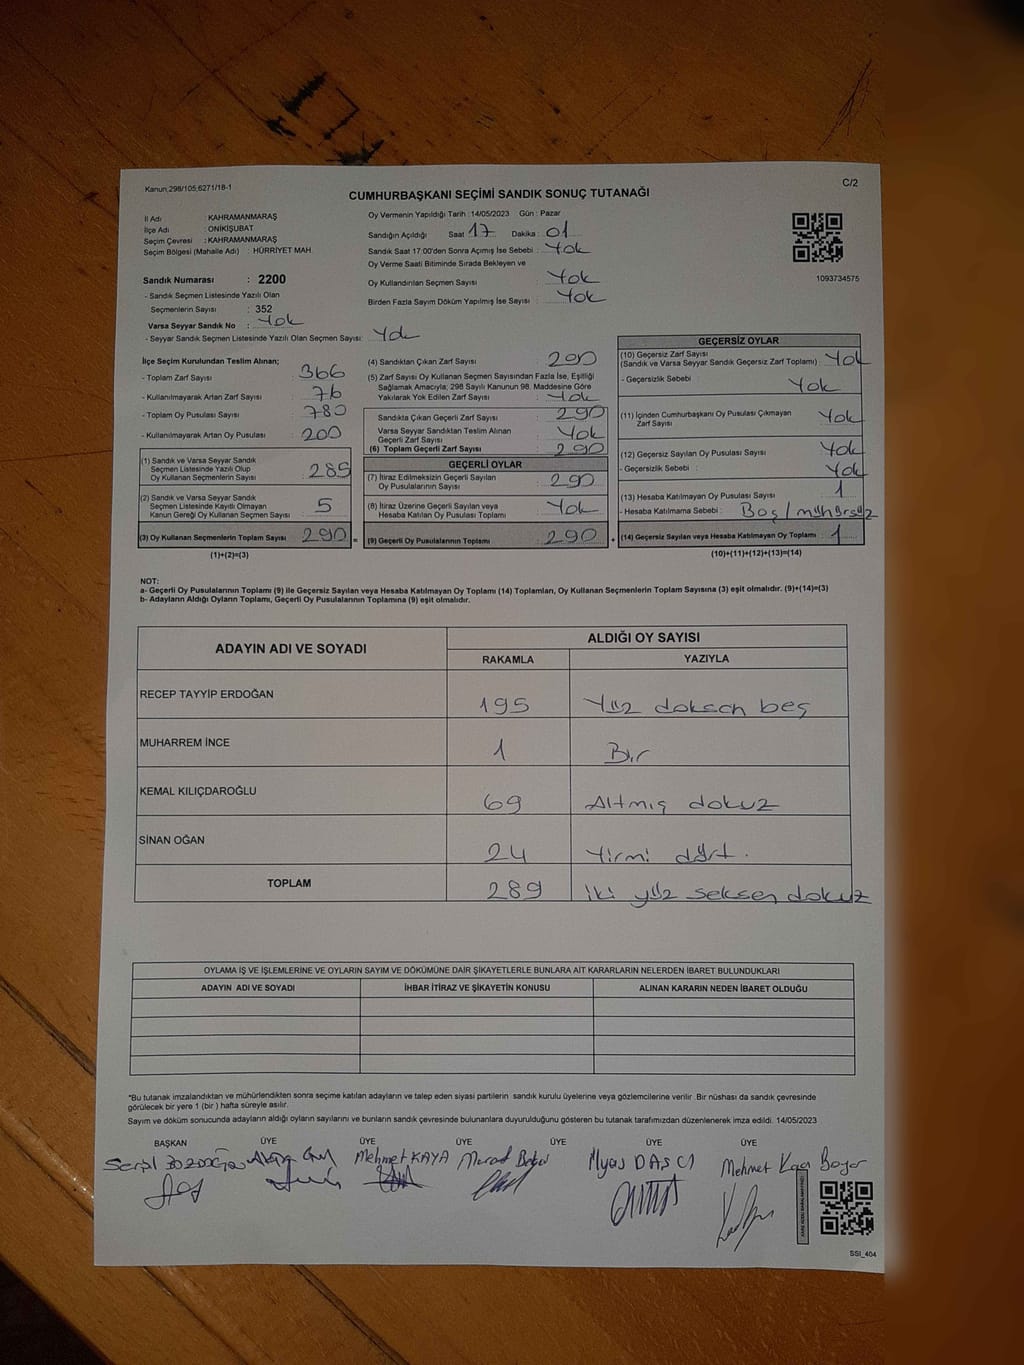 Kanun;298/105;6271/18-1
C/2
CUMHURBAŞKANI SEÇİMİ SANDIK SONUÇ TUTANAĞI
İl Adı : KAHRAMANMARAŞ
İlçe Adı : ONİKİŞUBAT
Seçim Çevresi : KAHRAMANMARAŞ
Seçim Bölgesi (Mahalle Adı) : HÜRRİYET MAH.
Sandık Numarası : 2200
- Sandık Seçmen Listesinde Yazılı Olan
Seçmenlerin Sayısı : 352
Varsa Seyyar Sandık No : Yok
- Seyyar Sandık Seçmen Listesinde Yazılı Olan Seçmen Sayısı: Yok
Oy Vermenin Yapıldığı Tarih :14/05/2023 Gün : Pazar
Sandığın Açıldığı Saat 17 Dakika : 01
Sandık Saat 17.00'den Sonra Açımış İse Sebebi : Yok
Oy Verme Saati Bitiminde Sırada Bekleyen ve
Oy Kullandırılan Seçmen Sayısı : Yok
Birden Fazla Sayım Döküm Yapılmış İse Sayısı : Yok
1093734575
İlçe Seçim Kurulundan Teslim Alınan;
- Toplam Zarf Sayısı : 366
- Kullanılmayarak Artan Zarf Sayısı : 76
- Toplam Oy Pusulası Sayısı : 780
- Kullanılmayarak Artan Oy Pusulası : 200
(1) Sandık ve Varsa Seyyar Sandık
Seçmen Listesinde Yazılı Olup
Oy Kullanan Seçmenlerin Sayısı : 285
(2) Sandık ve Varsa Seyyar Sandık
Seçmen Listesinde Kayıtlı Olmayan
Kanun Gereği Oy Kullanan Seçmen Sayısı : 5
(3) Oy Kullanan Seçmenlerin Toplam Sayısı : 290 =
(1)+(2)=(3)
(4) Sandıktan Çıkan Zarf Sayısı : 290
(5) Zarf Sayısı Oy Kullanan Seçmen Sayısından Fazla İse, Eşitliği
Sağlamak Amacıyla; 298 Sayılı Kanunun 98. Maddesine Göre
Yakılarak Yok Edilen Zarf Sayısı : Yok
Sandıkta Çıkan Geçerli Zarf Sayısı : 290
Varsa Seyyar Sandıktan Teslim Alınan
Geçerli Zarf Sayısı : Yok
(6) Toplam Geçerli Zarf Sayısı : 290
GEÇERLİ OYLAR
(7) İtiraz Edilmeksizin Geçerli Sayılan
Oy Pusulalarının Sayısı : 290
(8) İtiraz Üzerine Geçerli Sayılan veya
Hesaba Katılan Oy Pusulası Toplamı : Yok
(9) Geçerli Oy Pusulalarının Toplamı : 290 +
GEÇERSİZ OYLAR
(10) Geçersiz Zarf Sayısı
(Sandık ve Varsa Seyyar Sandık Geçersiz Zarf Toplamı) : Yok
- Geçersizlik Sebebi : Yok
(11) İçinden Cumhurbaşkanı Oy Pusulası Çıkmayan
Zarf Sayısı : Yok
(12) Geçersiz Sayılan Oy Pusulası Sayısı : Yok
- Geçersizlik Sebebi : Yok
(13) Hesaba Katılmayan Oy Pusulası Sayısı : 1
- Hesaba Katılmama Sebebi : Boş/mühürsüz
(14) Geçersiz Sayılan veya Hesaba Katılmayan Oy Toplamı : 1
(10)+(11)+(12)+(13)=(14)
NOT:
a- Geçerli Oy Pusulalarının Toplamı (9) ile Geçersiz Sayılan veya Hesaba Katılmayan Oy Toplamı (14) Toplamları, Oy Kullanan Seçmenlerin Toplam Sayısına (3) eşit olmalıdır. (9)+(14)=(3)
b- Adayların Aldığı Oyların Toplamı, Geçerli Oy Pusulalarının Toplamına (9) eşit olmalıdır.
ADAYIN ADI VE SOYADI ALDIĞI OY SAYISI
RAKAMLA YAZIYLA
RECEP TAYYİP ERDOĞAN 195 Yüz doksan beş
MUHARREM İNCE 1 Bir
KEMAL KILIÇDAROĞLU 69 Altmış dokuz
SİNAN OĞAN 24 Yirmi dört.
TOPLAM 289 iki yüz seksen dokuz
OYLAMA İŞ VE İŞLEMLERİNE VE OYLARIN SAYIM VE DÖKÜMÜNE DAİR ŞİKAYETLERLE BUNLARA AİT KARARLARIN NELERDEN İBARET BULUNDUKLARI
ADAYIN ADI VE SOYADI İHBAR İTİRAZ VE ŞİKAYETİN KONUSU ALINAN KARARIN NEDEN İBARET OLDUĞU
*Bu tutanak imzalandıktan ve mühürlendikten sonra seçime katılan adayların ve talep eden siyasi partilerin sandık kurulu üyelerine veya gözlemcilerine verilir. Bir nüshası da sandık çevresinde
görülecek bir yere 1 (bir ) hafta süreyle asılır.
Sayım ve döküm sonucunda adayların aldığı oyların sayılarını ve bunların sandık çevresinde bulunanlara duyurulduğunu gösteren bu tutanak tarafımızdan düzenlenerek imza edildi. 14/05/2023
BAŞKAN ÜYE ÜYE ÜYE ÜYE ÜYE ÜYE
Mehmet KAYA Murad İlyas DAŞCI Mehmet
SSI_404